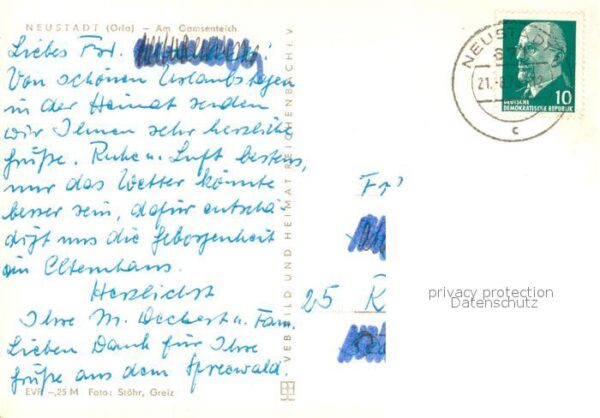 NEUSTADT (Orla) – Am Gamsenteich
Liebes Frl.
Von schönen Urlaubstagen
in der Heimat senden
wir Ihnen sehr herzliche
Grüße. Ruhe u. Luft bestens,
nur das Wetter könnte
besser sein, dafür entschä-
digt uns die Geborgenheit
im Elternhaus.
Herzlichst
Ihre M. Dechert u. Fam.
Lieben Dank für Ihre
Grüße aus dem Spreewald.
EVP –,25 M Foto: Stöhr, Greiz
VEB BILD UND HEIMAT REICHENBACH I. V.
NEUSTADT
21.
c
10
DEUTSCHE
DEMOKRATISCHE REPUBLIK
Fr
25 R
privacy protection
Datenschutz